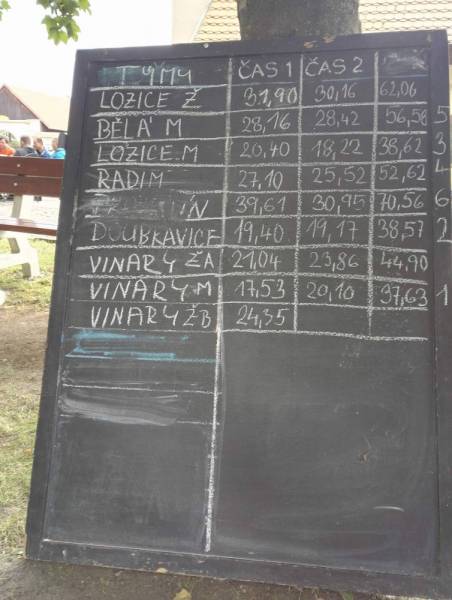 TÝMY ČAS 1 ČAS 2
LOZICE Ž 31,90 30,16 62,06
BĚLÁ M 28,16 28,42 56,58 5
LOZICE M 20,40 18,22 38,62 3
RADIM 27,10 25,52 52,62 4
39,61 30,95 70,56 6
DOUBRAVICE 19,40 19,17 38,57 2
VINARY ŽA 21,04 23,86 44,90
VINARY M 17,53 20,10 37,63 1
VINARY ŽB 24,35